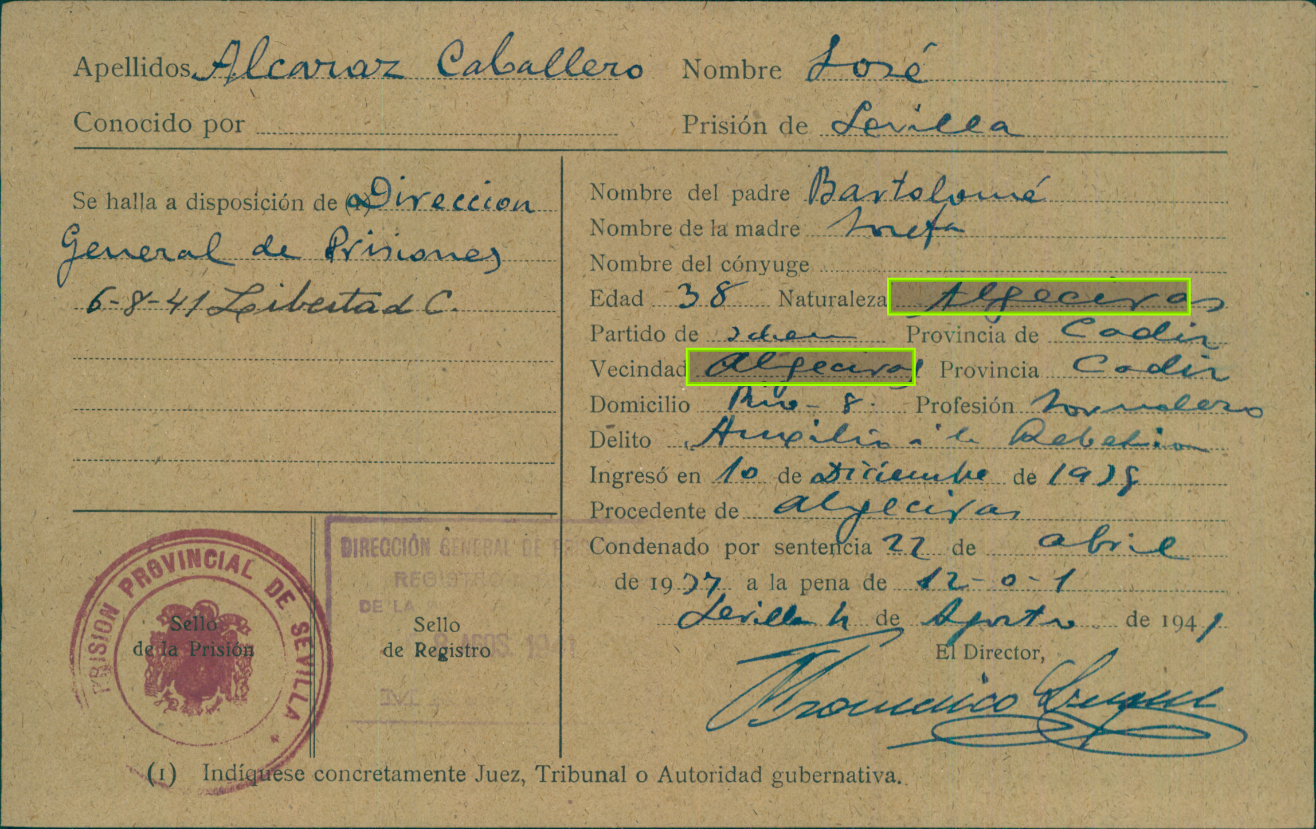 Apellidos Alcaraz Caballero Nombre José
Conocido por Prisión de Sevilla
Se halla a disposición de (1) Direccion
General de Prisiones
6-8-41 Libertad C.
Nombre del padre Bartolomé
Nombre de la madre Josefa
Nombre del cónyuge
Edad 38 Naturaleza Algeciras
Partido de idem Provincia de Cadiz
Vecindad Algeciras Provincia Cadiz
Domicilio 8 Profesión Jornalero
Delito Auxilio a la Rebelion
Ingresó en 10 de Diciembre de 19
Procedente de algeciras
Condenado por sentencia 22 de abril
de 1937 a la pena de 12-0-1
Sevilla 4 de Agosto de 1941
El Director,
Francisco
PRISIÓN PROVINCIAL DE SEVILLA
Sello
de la Prisión
DIRECCIÓN GENERAL DE PRISIONES
REGISTRO
DE LA
AGOS. 1941
Sello
de Registro
(1) Indíquese concretamente Juez, Tribunal o Autoridad gubernativa.